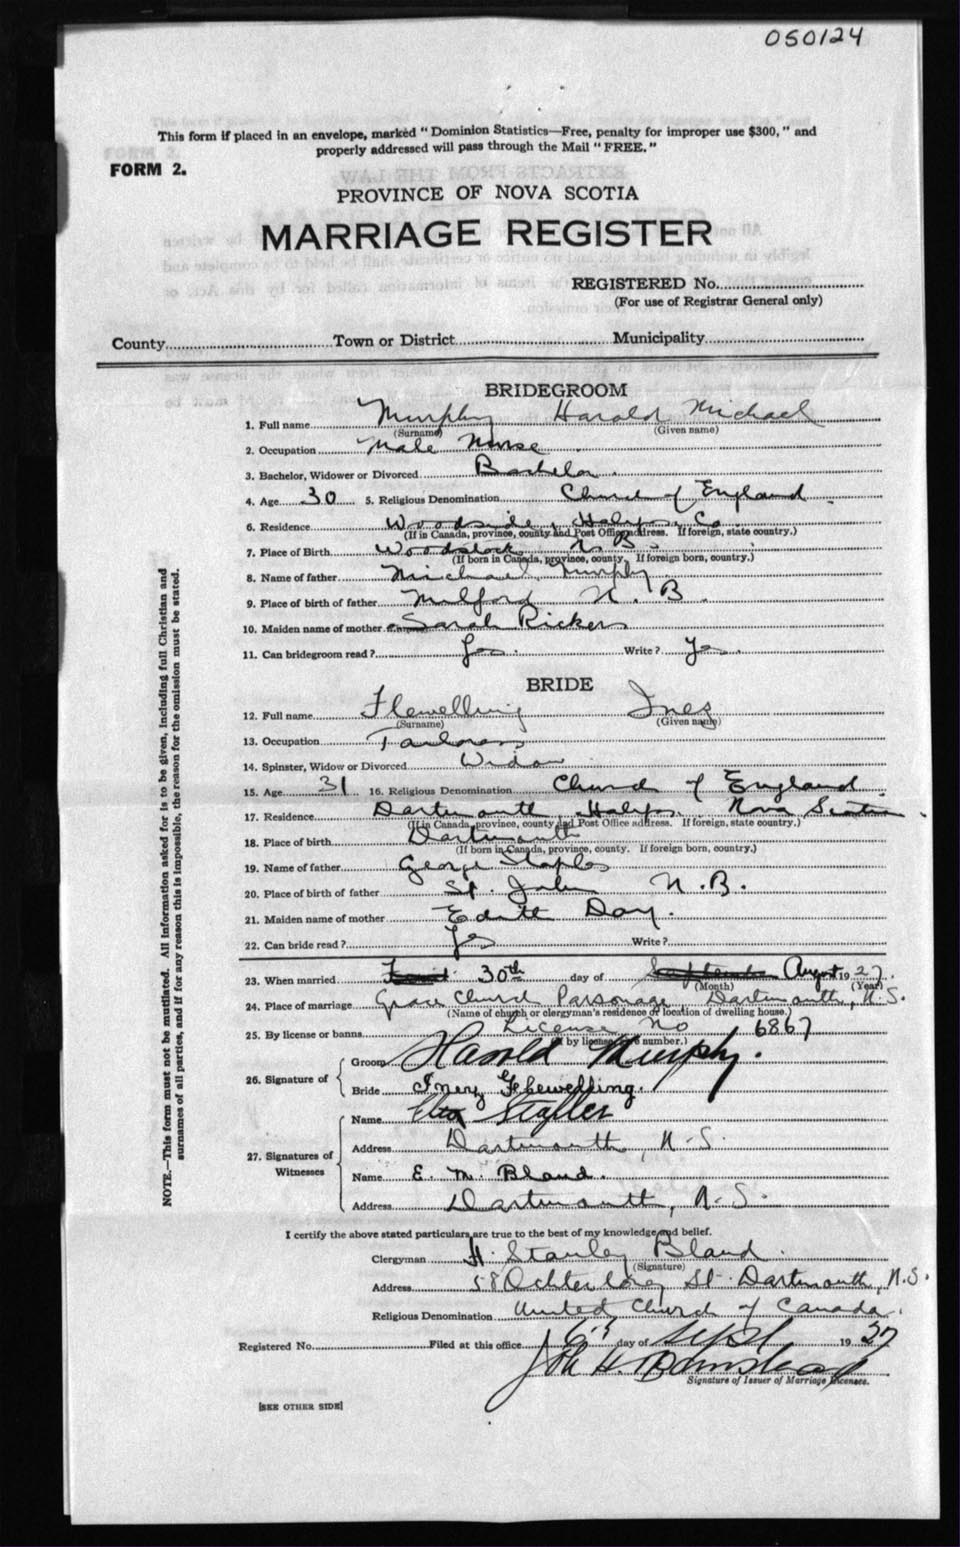 050124
This form if placed in an envelope, marked "Dominion Statistics—Free, penalty for improper use $300," and
properly addressed will pass through the Mail "FREE."
FORM 2.
PROVINCE OF NOVA SCOTIA
MARRIAGE REGISTER
REGISTERED No.
(For use of Registrar General only)
County Town or District Municipality
BRIDEGROOM
1. Full name Murphy Harold Michael
(Surname) (Given name)
2. Occupation Male Nurse
3. Bachelor, Widower or Divorced Bachelor
4. Age 30 5. Religious Denomination Church of England
6. Residence Woodside, Halifax Co.
(If in Canada, province, county and Post Office address. If foreign, state country.)
7. Place of Birth Woodstock N.B.
(If born in Canada, province, county. If foreign born, country.)
8. Name of father Michael Murphy
9. Place of birth of father Milford N.B.
10. Maiden name of mother Sarah Rickers
11. Can bridegroom read? Yes. Write? Yes.
BRIDE
12. Full name Flewelling Inez
(Surname) (Given name)
13. Occupation Tailoress
14. Spinster, Widow or Divorced Widow
15. Age 31 16. Religious Denomination Church of England
17. Residence Dartmouth Halifax Nova Scotia
(If in Canada, province, county and Post Office address. If foreign, state country.)
18. Place of birth Dartmouth
(If born in Canada, province, county. If foreign born, country.)
19. Name of father George Staples
20. Place of birth of father St. John N.B.
21. Maiden name of mother Edith Day.
22. Can bride read? Yes Write?
23. When married 30th day of September August 1927.
(Month) (Year)
24. Place of marriage Grace Church Parsonage, Dartmouth, N.S.
(Name of church or clergyman's residence or location of dwelling house.)
25. By license or banns License No 6867
(If by license give number.)
26. Signature of
Groom Harold Murphy.
Bride Inez Flewelling.
27. Signatures of Witnesses
Name
Address Dartmouth, N.S.
Name E. M. Bland.
Address Dartmouth, N.S.
I certify the above stated particulars are true to the best of my knowledge and belief.
Clergyman H. Stanley Bland.
(Signature)
Address 58 Ochterloney St. Dartmouth, N.S.
Religious Denomination United Church of Canada.
Registered No. Filed at this office day of Sept 1927
Signature of Issuer of Marriage Licenses.
[SEE OTHER SIDE]
NOTE.—This form must not be mutilated. All information asked for is to be given, including full Christian and
surnames of all parties, and if for any reason this is impossible, the reason for the omission must be stated.